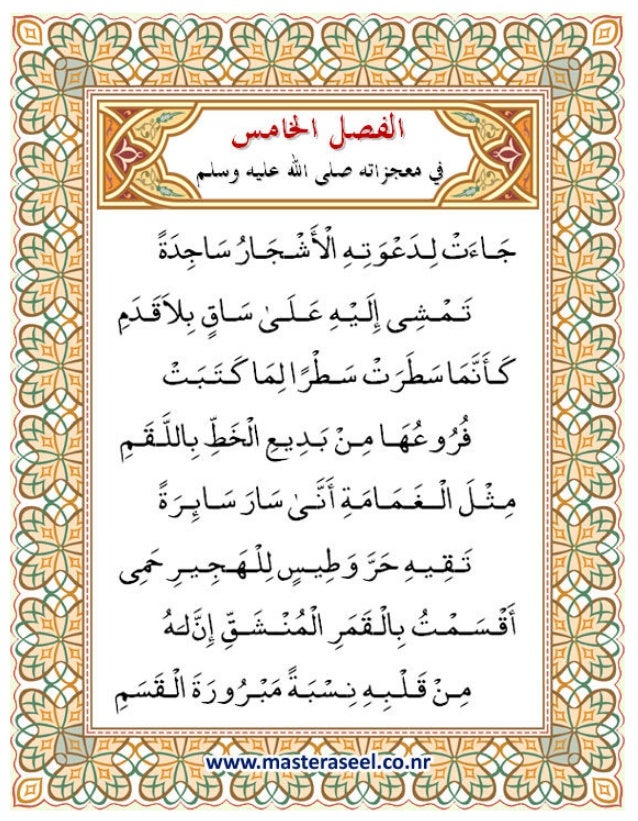 الفصل الخامس
في معجزاته صلى الله عليه وسلم
جَاءَتْ لِدَعْوَتِهِ الْأَشْجَارُ سَاجِدَةً
تَمْشِى إِلَيْهِ عَلَىٰ سَاقٍ بِلَاقَدَمِ
كَأَنَّمَا سَطَرَتْ سَطْرًا لِمَا كَتَبَتْ
فُرُوعُهَا مِنْ بَدِيعِ الْخَطِّ بِاللَّقَمِ
مِثْلَ الْغَمَامَةِ أَنَّىٰ سَارَ سَايِرَةً
تَقِيهِ حَرَّ وَطِيسٍ لِلْهَجِيرِ حَمِى
أَقْسَمْتُ بِالْقَمَرِ الْمُنْشَقِّ إِنَّ لَهُ
مِنْ قَلْبِهِ نِسْبَةً مَبْرُورَةَ الْقَسَمِ
www.masteraseel.co.nr